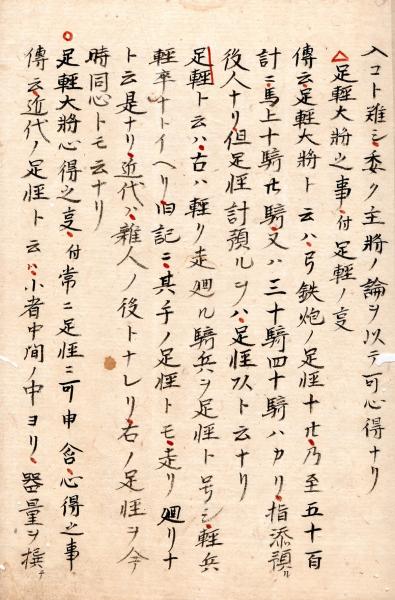 入コト難シ委ク主將ノ論ヲ以テ可心得ナリ
△足輕大將之事付足輕ノ叓
傳云足輕大將ト云ハ弓鉄炮ノ足恇十廿乃至五十百
計ニ馬上十騎廿騎又ハ三十騎四十騎ハカリ指添預ル
役人ナリ但足恇計預ルヲハ足恇大将ト云ナリ
足輕ト云ハ古ハ輕ク走廻ル騎兵ヲ足恇ト号シ輕兵
輕卒ナトイヘリ旧記ニ其手ノ足恇トモ走リ廻リナ
ト云是ナリ近代ハ雜人ノ役トナレリ右ノ足恇ヲ今
時同心トモ云ナリ
○足輕大將心得之叓付常ニ足恇ニ可申含心得之事
傳云近代ノ足恇ト云ハ小者中間ノ中ヨリ器量ヲ撰テ